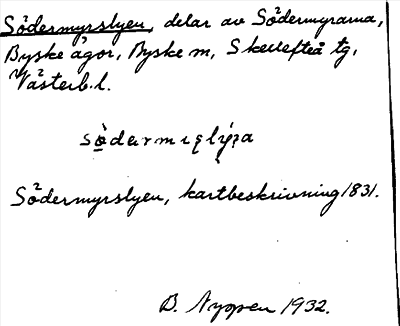 Södermyrslyen, delar av Södermyrarna,
Byske ägor, Byske sn, Skellefteå tg,
Västerb.l.
Södermyrslyen, kartbeskrivning 1831.
B. Nygren 1932.